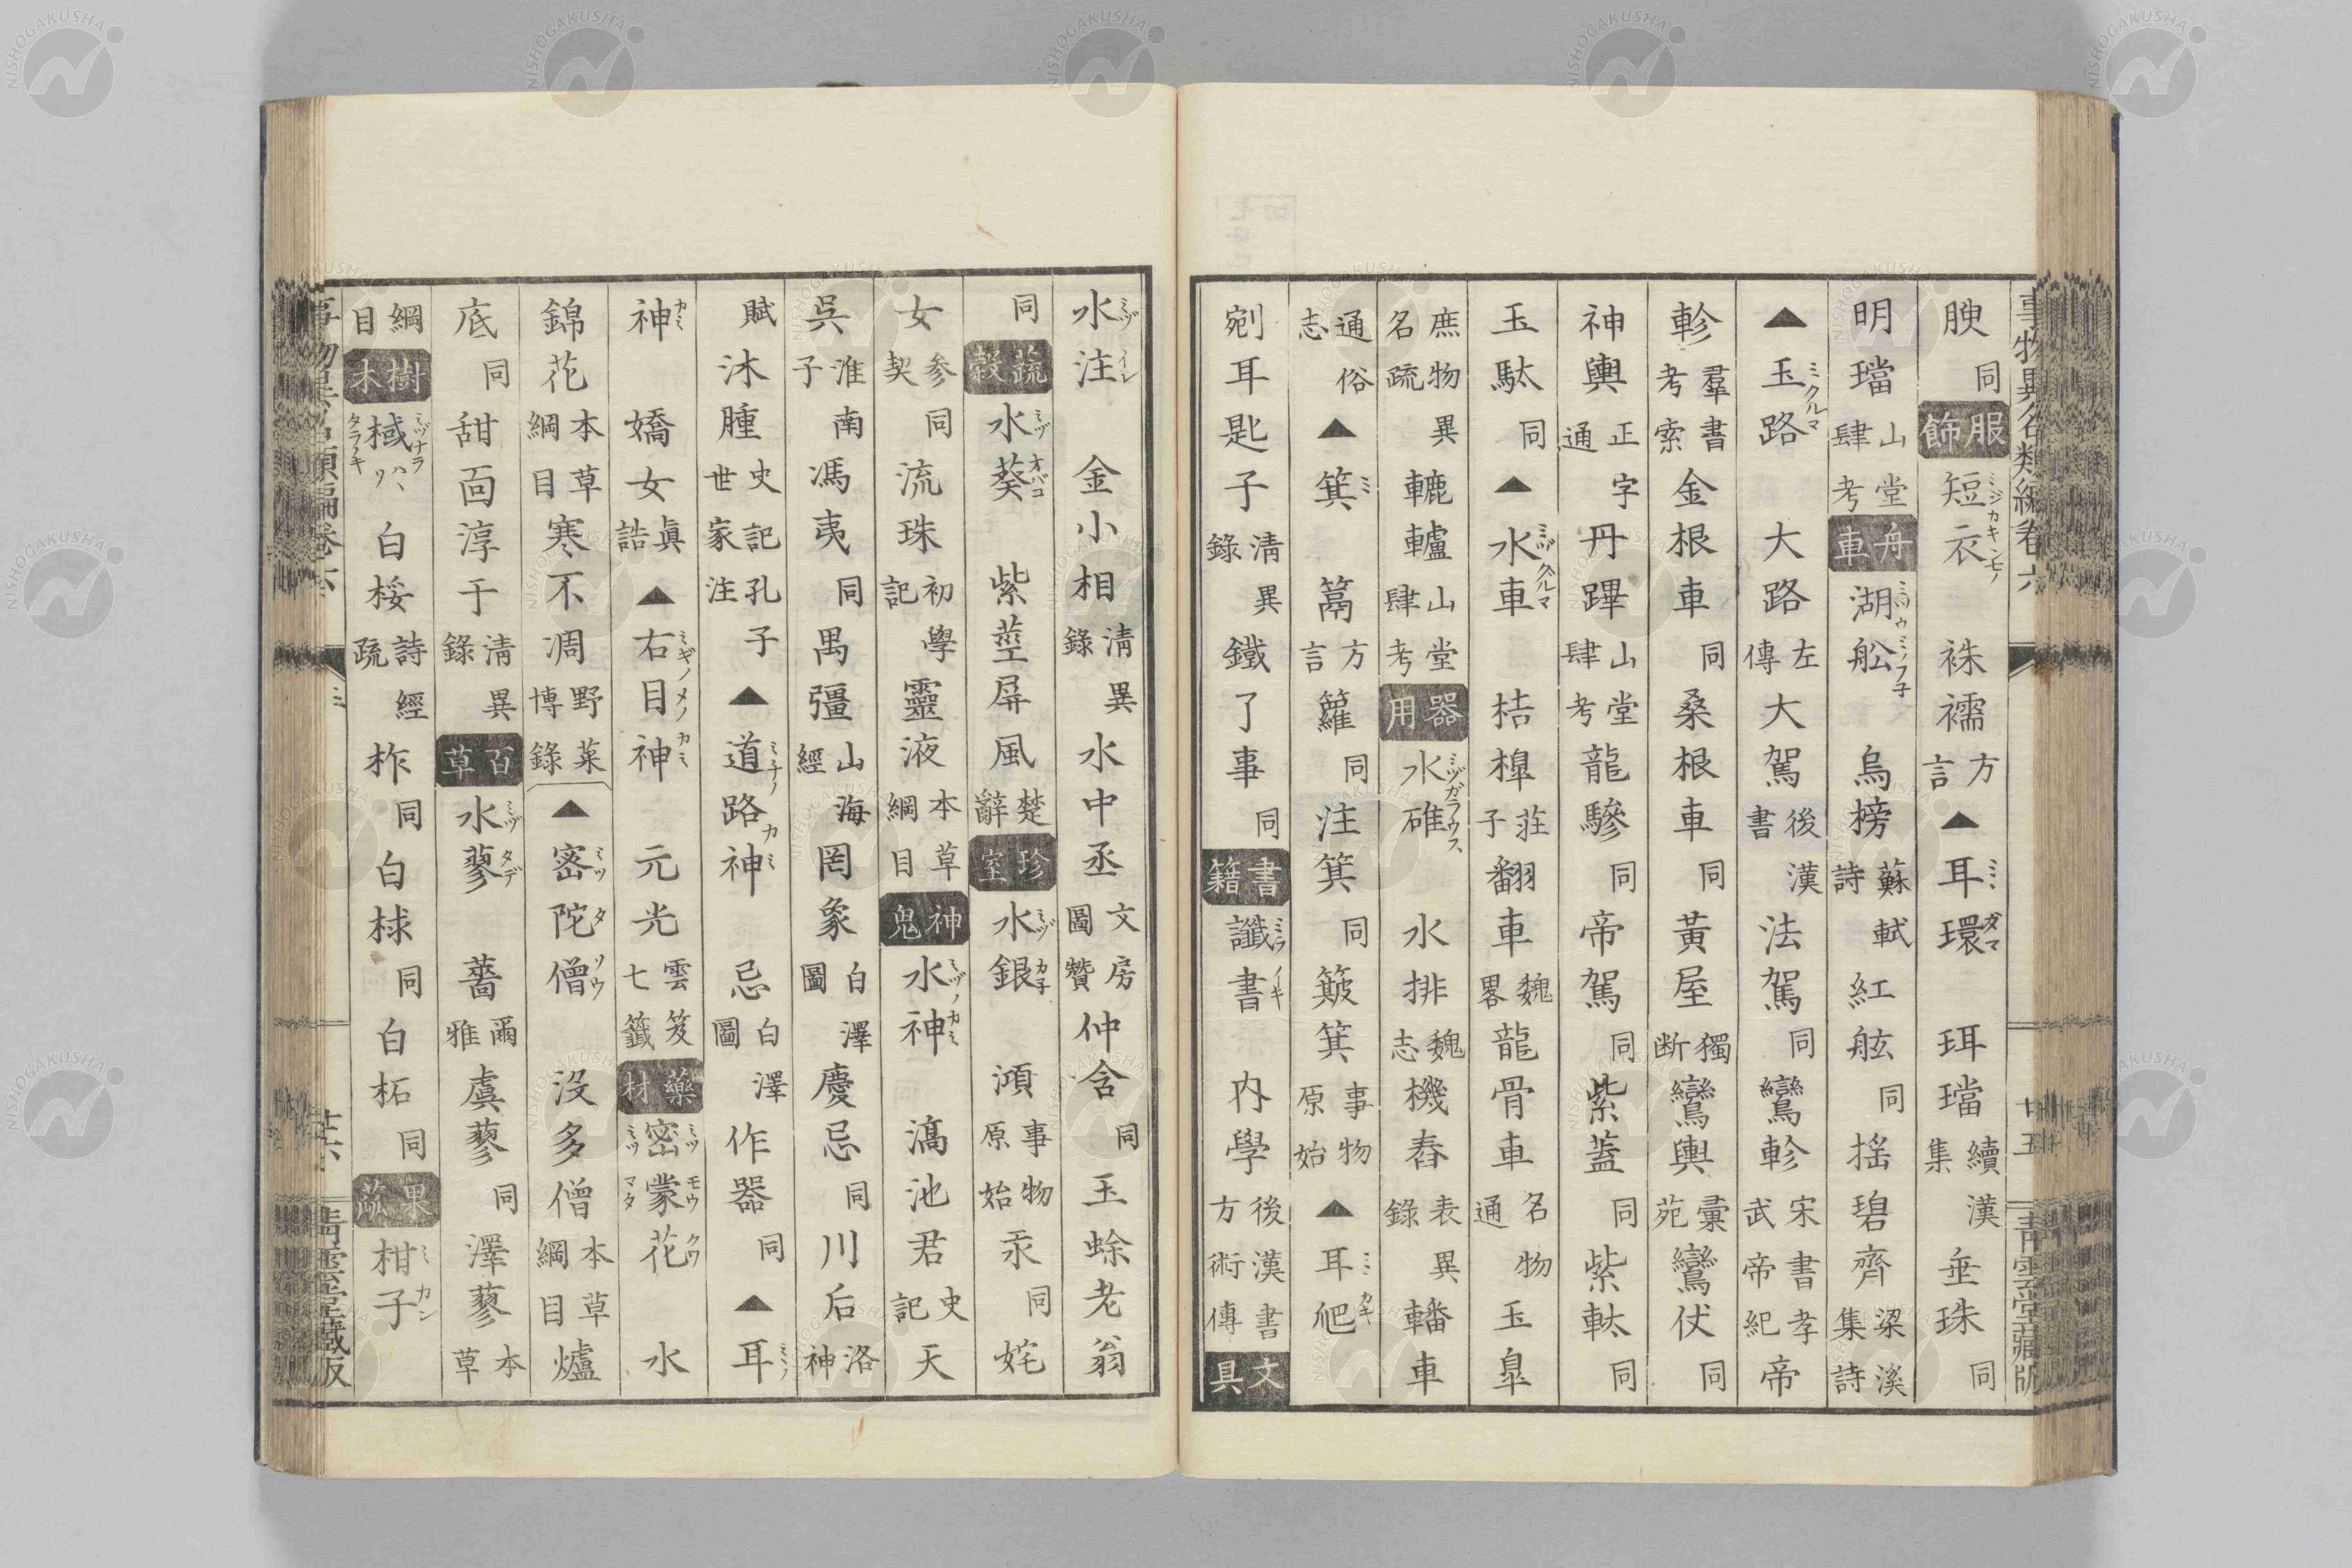 事物異名類編卷六
廿五
青雲堂藏版
腴同服飾短衣ミジカキキモノ袾襦方言▲耳環ミヽダマ珥璫續漢集垂珠同
明璫山堂肆考舟車湖舩ミヅウミノフ子烏榜蘇軾詩紅舷同搖碧齊梁溪詩集
▲玉路ミクルマ大路左傳大駕後漢書法駕同鸞軫宋書孝武帝紀帝
軫羣書考索金根車同桑根車同黃屋獨断鸞輿彙苑鸞伏同
神輿正字通丹蹕山堂肆考龍驂同帝駕同紫蓋同紫軑同
玉軑同▲水車ミヅクルマ桔槹莊子翻車魏畧龍骨車名物通玉皐
庶物異名疏轆轤山堂肆考器用水碓ミヅガラウス水排魏志機舂表異錄轓車
通俗志▲箕ミ篙方言籮同注箕同簸箕事物原始▲耳爬ミヽカキ
剜耳匙子淸異錄鐵了事同書籍讖書ミライキ内學後漢書方術傳文具
水注ミヅイレ金小相淸異錄水中丞文房圖贊仲含同玉蜍老翁
同蔬穀水葵ミヅオバコ紫莖屏風楚辭珍室水銀ミヅカ子澒事物原始汞同姹
女参同契流珠初學記靈液本草綱目神鬼水神ミヅノカミ滈池君史記天
吳淮南子馮夷同禺彊山海經罔象白澤圖慶忌同川后洛神
賦沐腫史記世家孔子注▲道路神ミチノカミ忌白澤圖作器同▲耳ミヽノ
神カミ嬌女眞誥▲右目神ミギノメノカミ元光雲笈七籤藥材密蒙花ミツモウクワミツマタ水
錦花本草綱目寒不凋野菜博錄▲密陀僧ミツタソウ沒多僧本草綱目爐
底同甜面淳于淸異錄百草水蓼ミヅタデ薔爾雅虞蓼同澤蓼本草
綱目樹木棫ミヅナラハヽワタラノキ白桵詩經疏柞同白梂同白柘同果蓏柑子ミカン
事物異名類編卷六
廿六
靑雲堂藏版